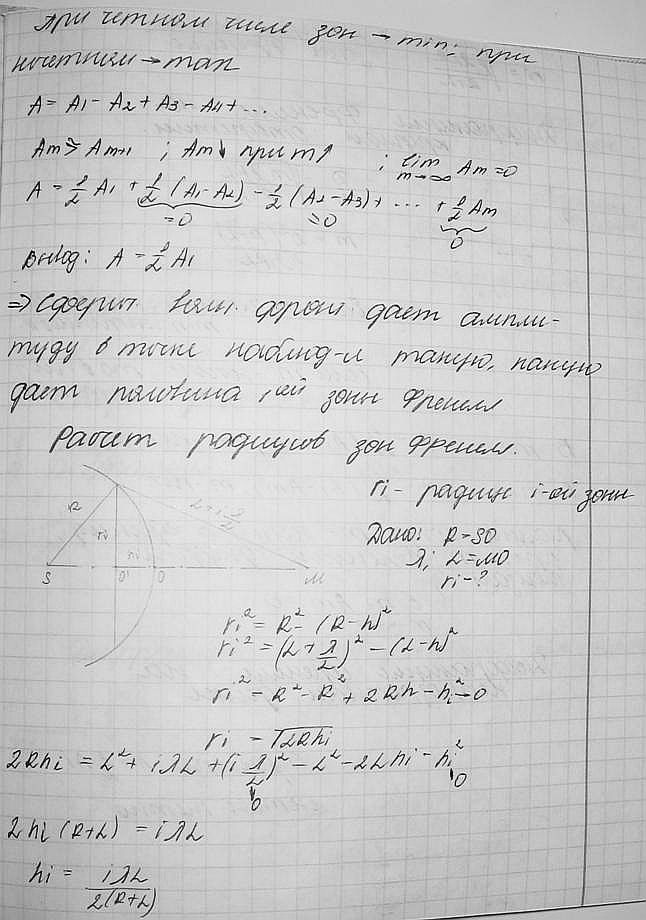 При четном числе зон → min; при
нечетном → max
A = A1 - A2 + A3 - A4 + ...
Am ≳ Am+1 ; Am↓ при m↑ ; lim m→∞ Am = 0
A = 1/2 A1 + 1/2 (A1 - A2) - 1/2 (A2 - A3) + ... + 1/2 Am
=0 =0 0
Вывод: A = 1/2 A1
⇒ Сферич. волн. фронт дает ампли-
туду в точке наблюд-я такую, какую
дает половина 1-ой зоны Френеля
Расчет радиусов зон Френеля.
ri - радиус i-ой зоны
R L + i λ/2
ri
hi
S O' O M
Дано: R = SO
λ, L = MO
ri - ?
ri² = R² - (R - h)²
ri² = (L + λ/2)² - (L - h)²
ri² = R² - R² + 2Rh - hi² → 0
ri = √2Rhi
2Rhi = L² + iλL + (i λ/2)² - L² - 2Lhi - hi²
0 0
2hi (R + L) = iλL
hi = iλL / 2(R + L)